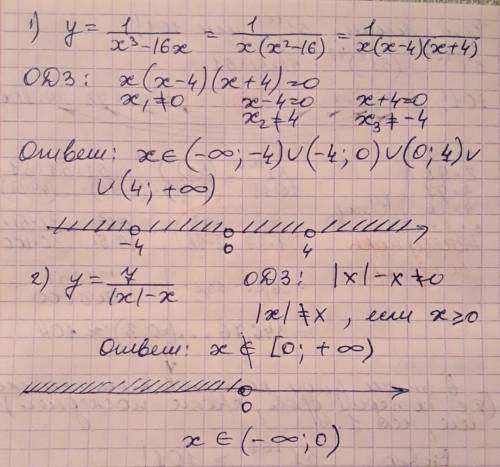 1) y = 1/(x³-16x) = 1/(x(x²-16)) = 1/(x(x-4)(x+4))
ОДЗ: x(x-4)(x+4)=0
x₁≠0 x-4=0 x+4=0
x₂≠4 x₃≠-4
Ответ: x∈(-∞;-4)∪(-4;0)∪(0;4)∪
∪(4;+∞)
-4 0 4
2) y = 7/(|x|-x) ОДЗ: |x|-x≠0
|x|≠x, если x≥0
Ответ: x∉[0;+∞)
0
x∈(-∞;0)